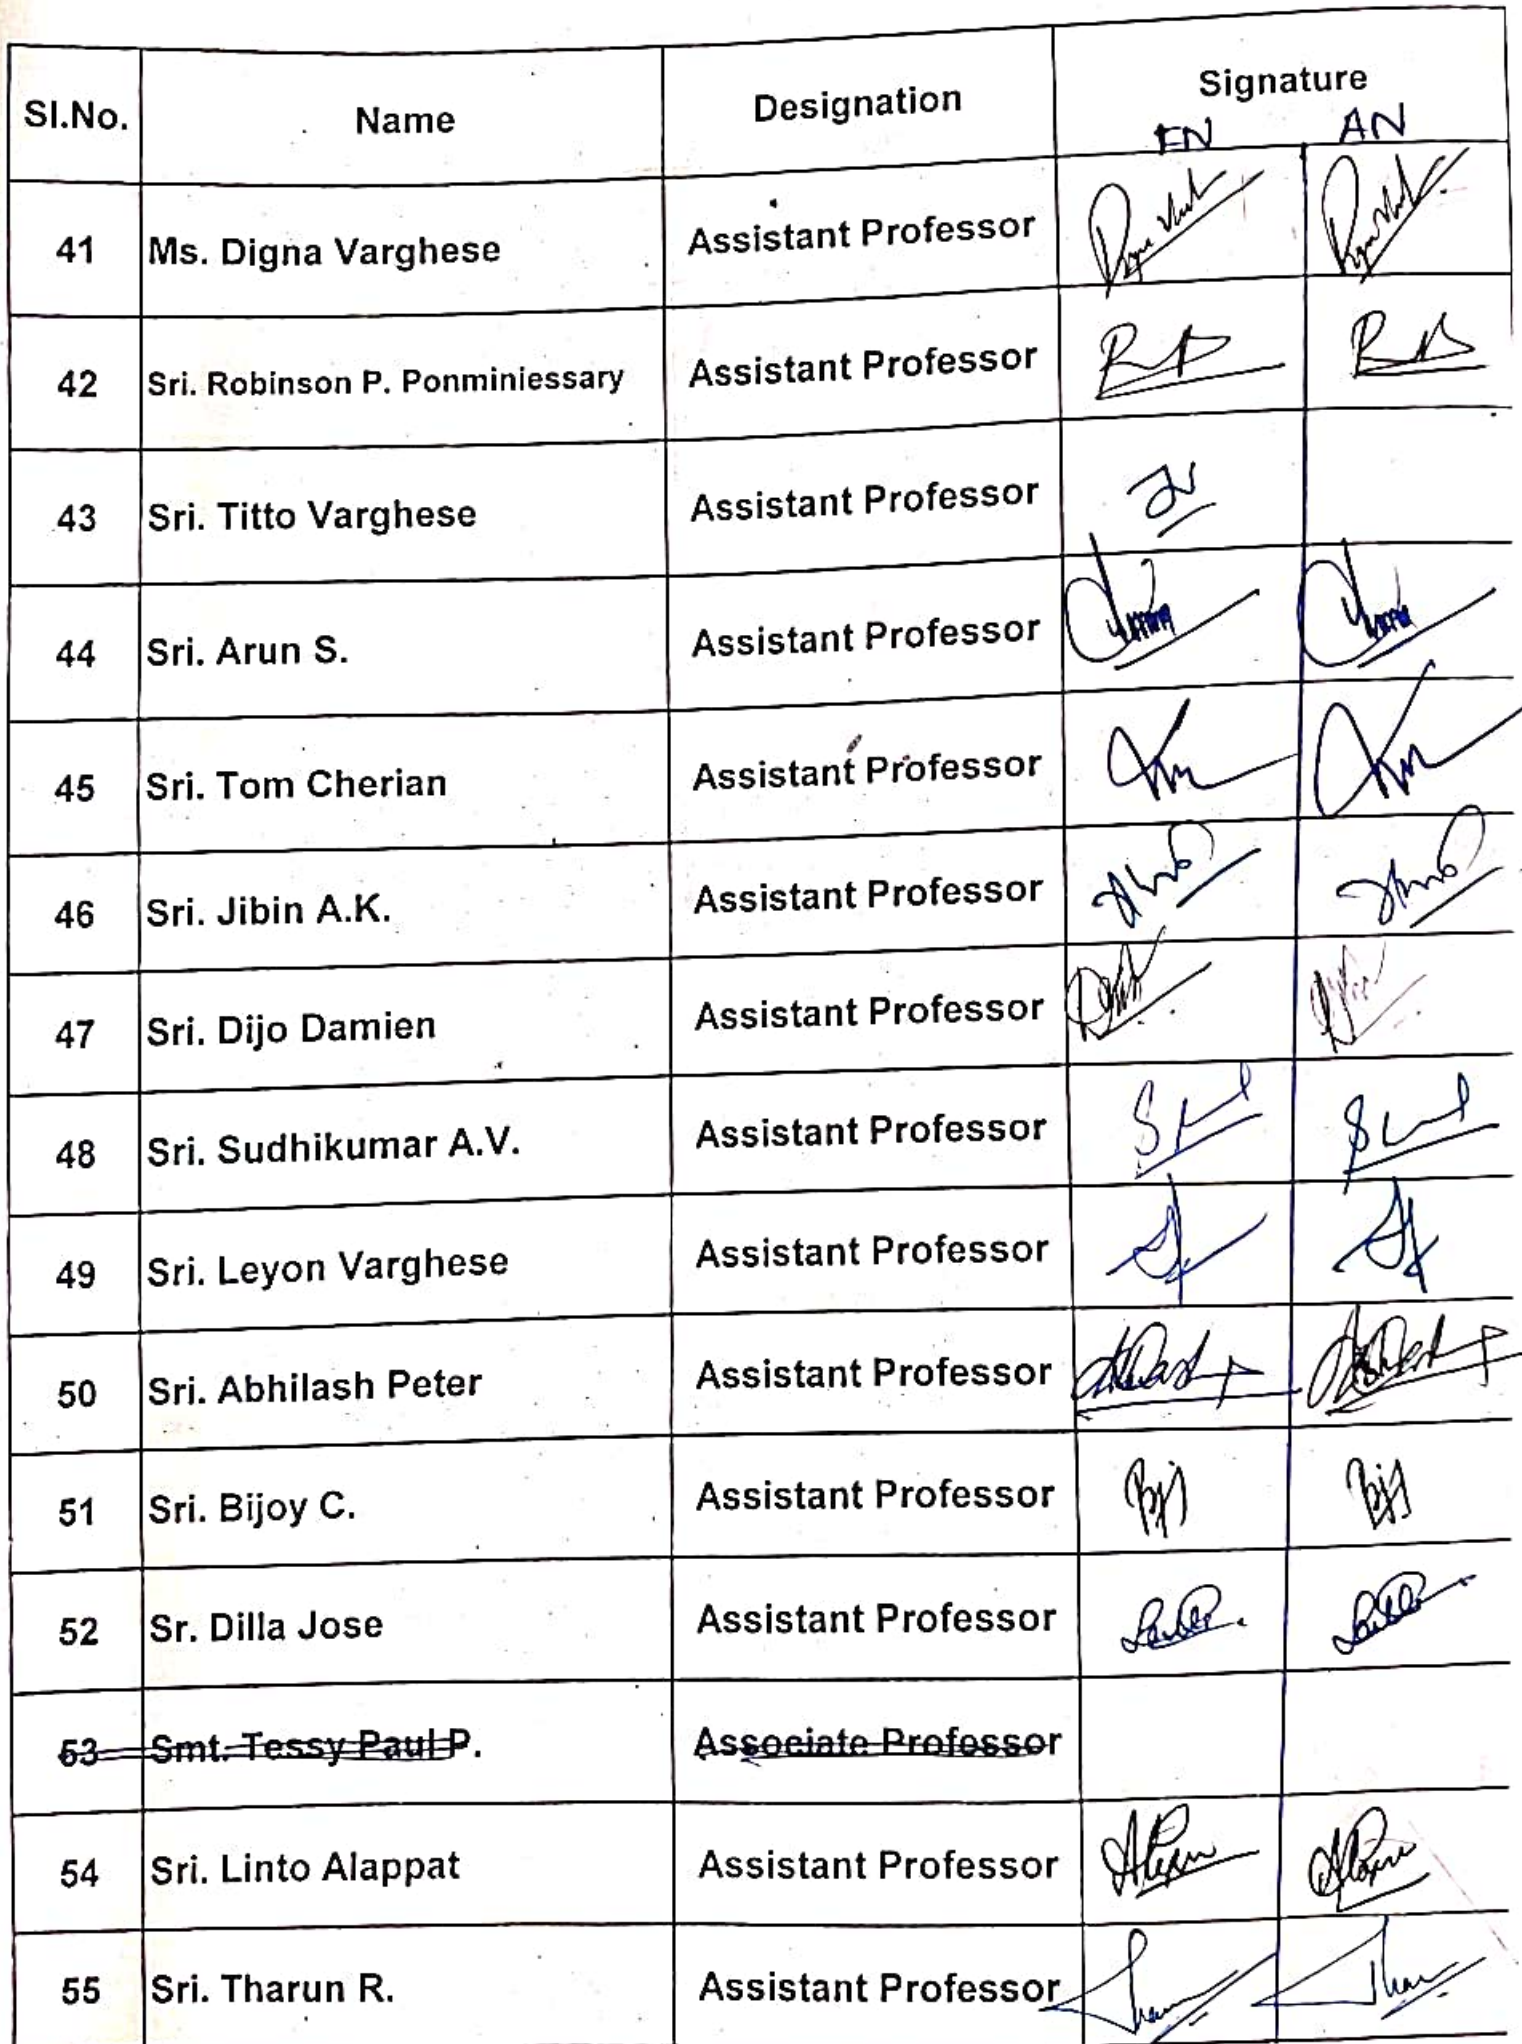 Sl.No. Name Designation Signature
FN AN
41 Ms. Digna Varghese Assistant Professor
42 Sri. Robinson P. Ponminiessary Assistant Professor
43 Sri. Titto Varghese Assistant Professor
44 Sri. Arun S. Assistant Professor
45 Sri. Tom Cherian Assistant Professor
46 Sri. Jibin A.K. Assistant Professor
47 Sri. Dijo Damien Assistant Professor
48 Sri. Sudhikumar A.V. Assistant Professor
49 Sri. Leyon Varghese Assistant Professor
50 Sri. Abhilash Peter Assistant Professor
51 Sri. Bijoy C. Assistant Professor
52 Sr. Dilla Jose Assistant Professor
53 Smt. Tessy Paul P. Associate Professor
54 Sri. Linto Alappat Assistant Professor
55 Sri. Tharun R. Assistant Professor